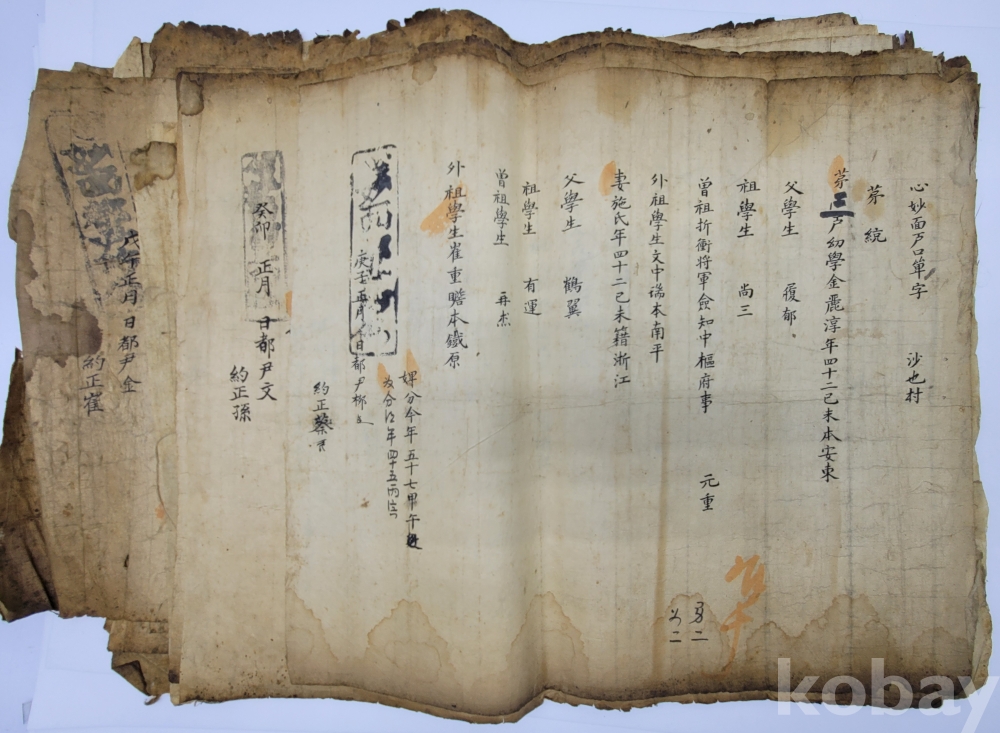 心妙面戶口單字 沙也村
茅 統
茅三戶幼學金麗淳年四十二己未本安東
父學生 履郁
祖學生 尙三
曾祖折衝將軍僉知中樞府事 元重
外祖學生文中瑞本南平
妻施氏年四十二己未籍浙江
父學生 鶴翼
祖學生 有運
曾祖學生 再杰
外祖學生崔重瞻本鐵原
婢分今年五十七甲午
年四十五丙
正月 日都尹柳
約正蔡
癸卯 正月 日都尹文
約正孫
戊午正月 日都尹金
約正崔
男二
女二
kobay